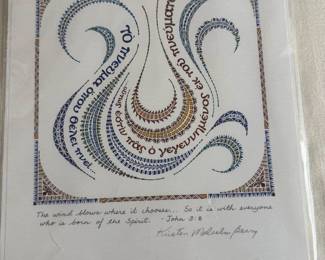 Το Πνεγμα οπου θελει πνει
ουτως εστιν πας ο γεγεννημενος
εκ του πνευματος
The wind blows where it chooses... So it is with everyone
who is born of the Spirit. -John 3:8
Kristen Malcolm Berry